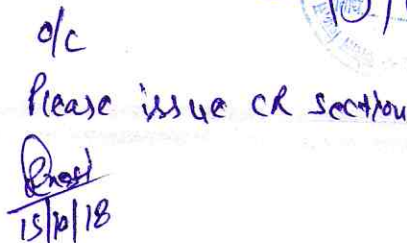 o/c
Please issue CR section
15/10/18